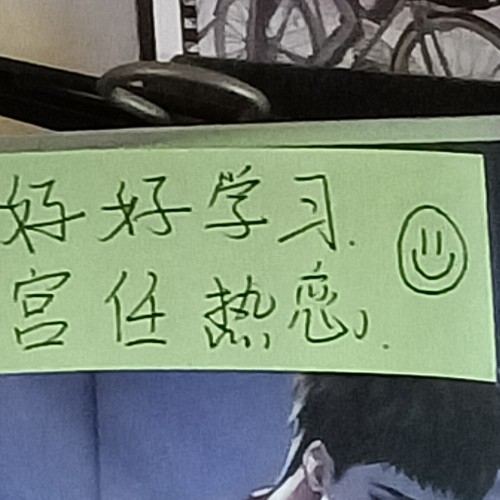 好好学习.
宫任热恋.